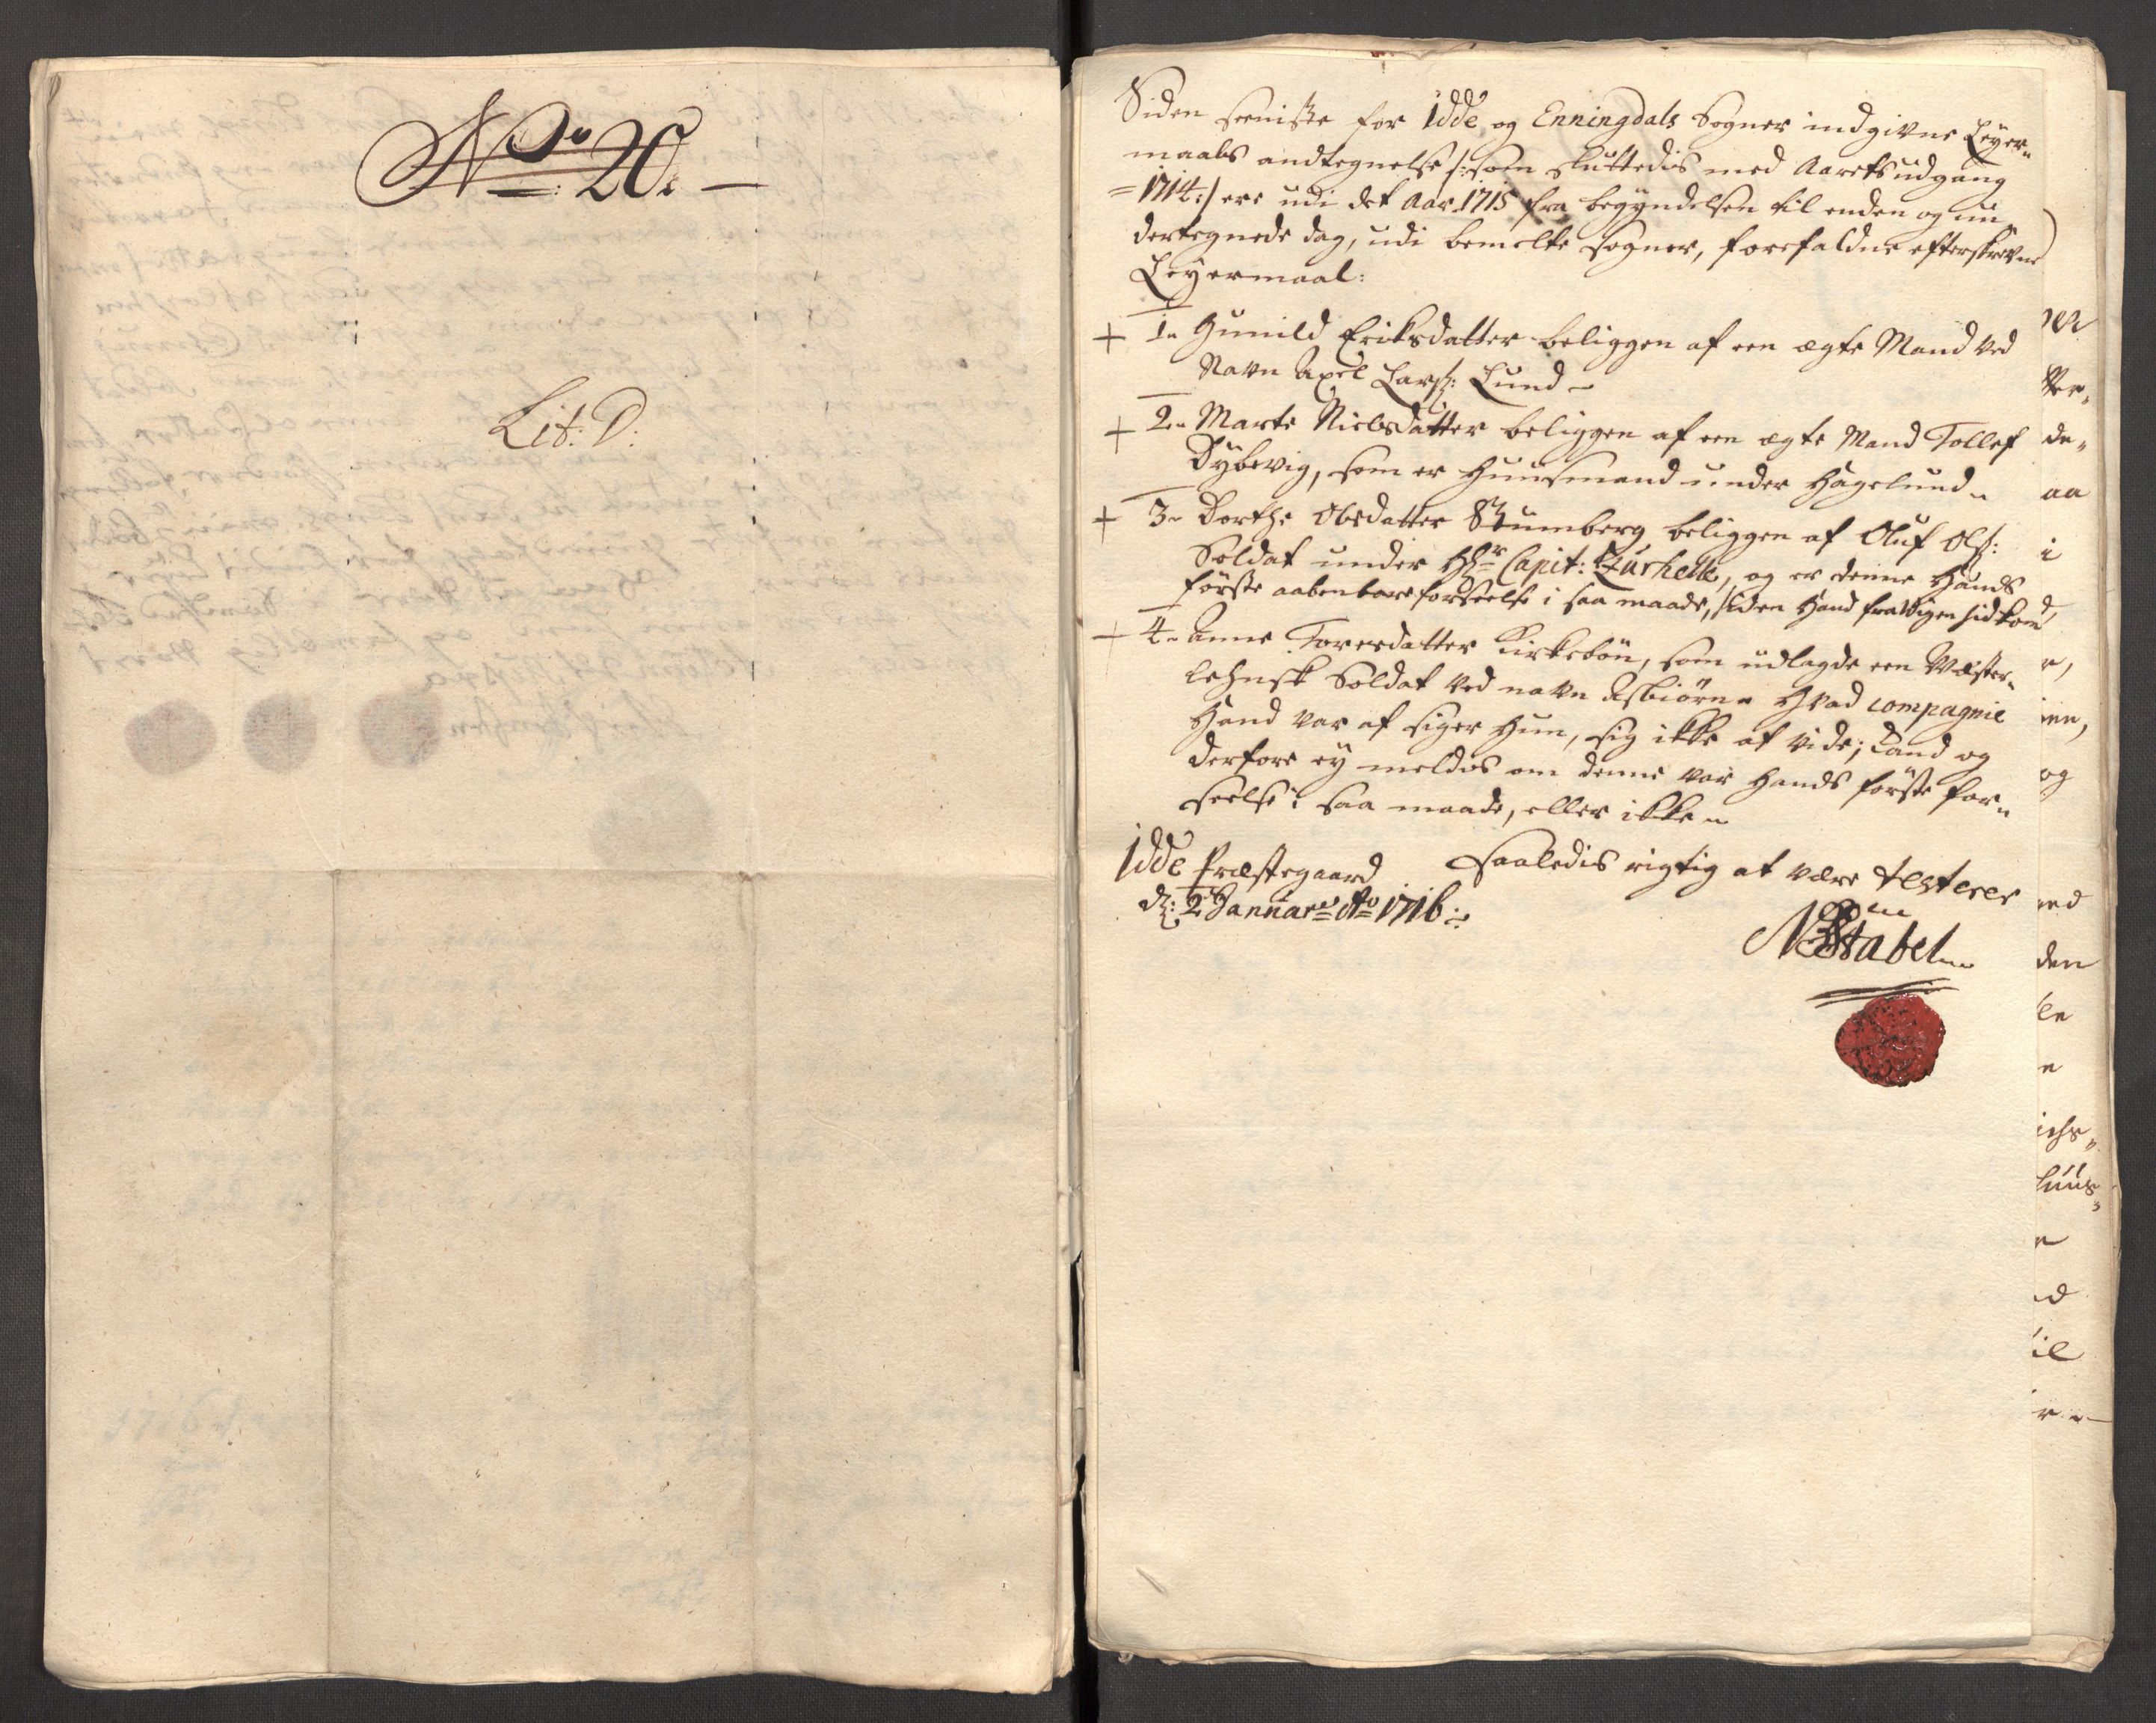 No 20.
Lit: D:
Siden seeniste for Idde og Enningdals Sogner indgivne Leyer-
maals andtegnelse /: som sluttedis med Aarets udgang
1714 :/ ere udi det Aar 1715 fra begyndelsen til enden og un
dertegnede dag, udi bemelte sogner, forefaldne efterskrevne
Leyermaal:
+ 1. Gunild Eriksdatter beliggen af een ægte Mand ved
Navn Axel Larß: Lund
+ 2. Marte Nielsdatter beliggen af een ægte Mand Tollef
Dybevig, som er Huusmand under Hagelund
+ 3. Dorthe Olsdatter beliggen af Oluf Olß:
Soldat under Hr Capit: Zurhelle, og er denne Hands
förste aabenbare forseelse i saa maade, siden Hand fra Krigen hid kom
4. Anne Toresdatter Kirkebön, som udlagde een Wester-
lehnsk Soldat ved navn Asbiörn. Hvad compagnie
Hand var af siger Hun, sig ikke at vide; kand og
derfore ey meldis om denne var Hands förste for-
seelse i saa maade, eller ikke
Idde Præstegaard
Saaledis rigtig at være testerer
d: 2 Januar: Ao 1716:
Stabel